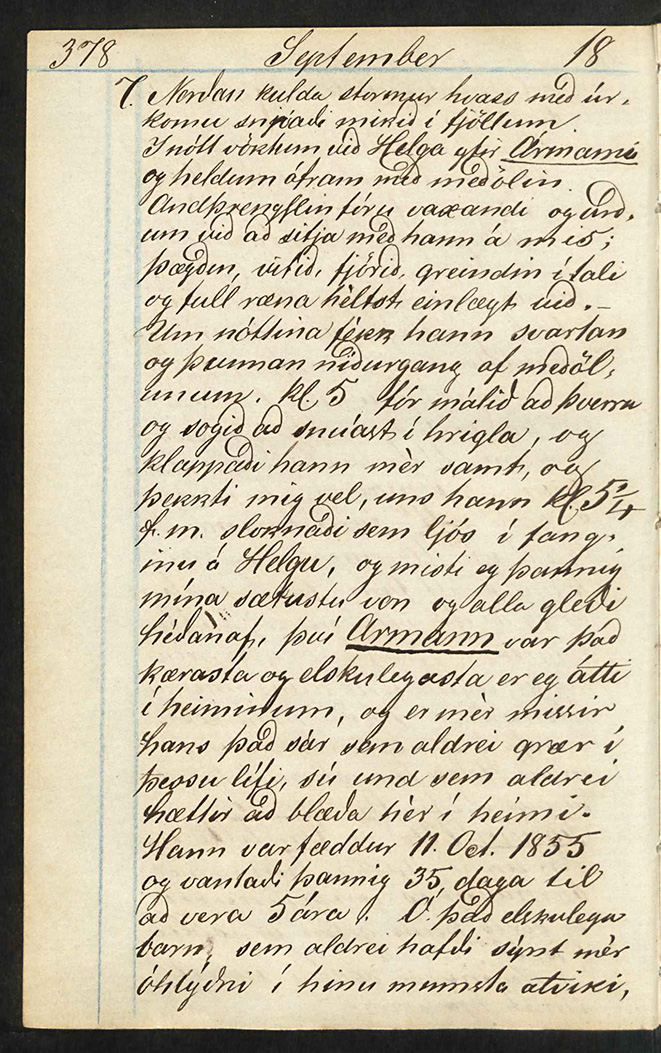 378 September 18
7. Norðan kulda stormur hvass með úr-
komu snjóaði mikið í fjöllum.
I nótt vöktum við Helga yfir Ármanni
og heldum áfram með meðölin.
Andþrengslin fóru vaxandi og urð-
um við að sitja með hann á mis;
þægðin, vitið, fjörið, greindin í tali
og full ræna héltst einlægt við. –
Um nóttina fékk hann svartan
og þunnan niðurgang af meðöl-
unum. Kl. 5 fór málið að þverra
og sogið að snúast í hrigla, og
klappaði hann mér samt, og
þekkti mig vel, uns hann kl. 5 1/4
f. m. sloknaði sem ljós í fang-
inu á Helgu, og misti eg þannig
mína sætustu von og alla gleði
héðanaf, því Ármann var það
kærasta og elskulegasta er eg átti
í heiminum, og er mér missir
hans það sár sem aldrei grær í
þessu lífi, sú und sem aldrei
hættir að blæða hér í heimi.
Hann var fæddur 11. Oct. 1855
og vantaði þannig 35 daga til
að vera 5 ára. Ó það elskulega
barn, sem aldrei hafði sýnt mér
óhlýðni í hinu minnsta atviki,